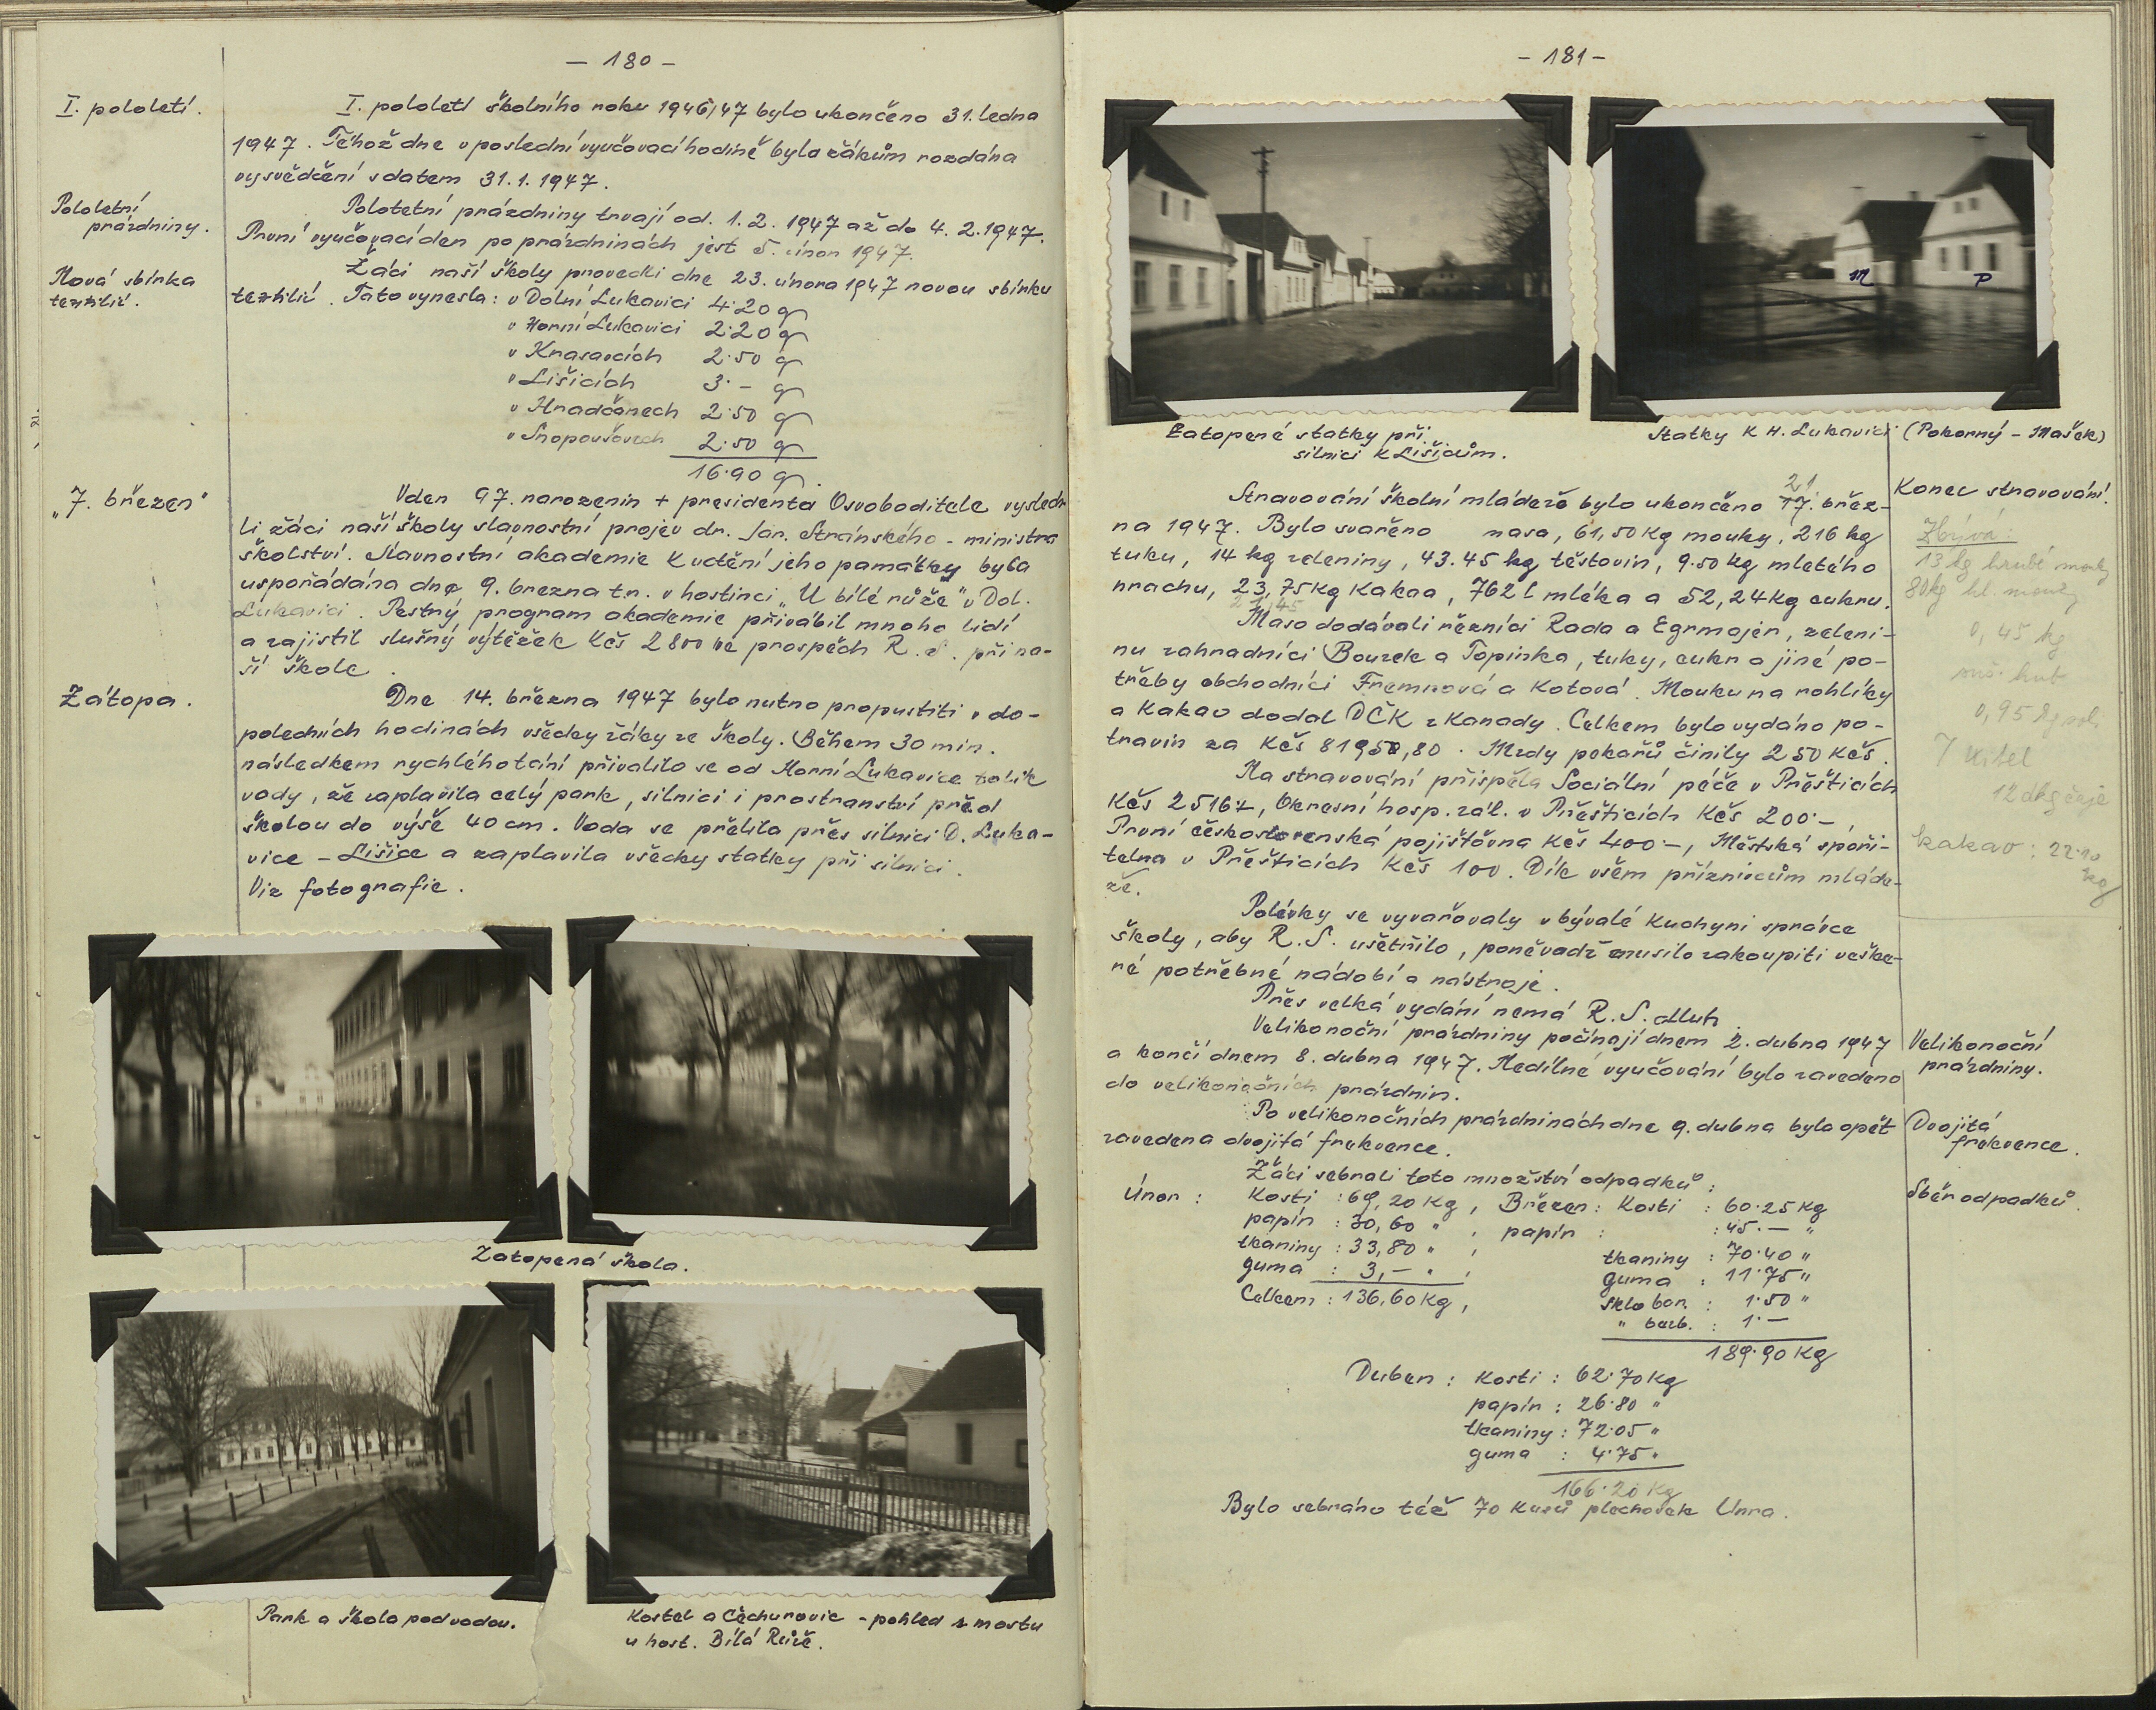 — 180 —
I. pololetí.
I. pololetí školního roku 1946/47 bylo ukončeno 31. ledna
1947. Téhož dne v poslední vyučovací hodině byla žákům rozdána
vysvědčení s datem 31.1.1947.
Pololetní
prázdniny.
Pololetní prázdniny trvají od. 1.2.1947 až do 4.2.1947.
První vyučovací den po prázdninách jest 5. únor 1947.
Nová sbírka
textilií.
Žáci naší školy provedli dne 23. února 1947 novou sbírku
textilií. Tato vynesla: v Dolní Lukavici 4·20 q
v Horní Lukavici 2·20 q
v Krasavcích 2·50 q
v Lišicích 3·— q
v Hradčanech 2·50 q
v Snopoušovech 2·50 q
16·90 q.
„7. březen"
V den 97. narozenin + presidenta Osvoboditele vyslech
li žáci naší školy slavnostní projev dr. Jar. Stránského - ministra
školství. Slavnostní akademie k uctění jeho památky byla
uspořádána dne 9. brezna t.r. v hostinci „U bílé růže" v Dol.
Lukavici. Pestrý program akademie přivábil mnoho lidí
a zajistil slušný výtěžek Kčs 2800 ve prospěch R.S. při na-
ší škole.
Zátopa.
Dne 14. března 1947 bylo nutno propustiti v do-
poledních hodinách všecky žáky ze školy. Během 30 min.
následkem rychlého tání přivalilo se od Horní Lukavice tolik
vody, že zaplavila celý park, silnici i prostranství před
školou do výše 40 cm. Voda se přelila přes silnici D. Luka-
vice – Lišice a zaplavila všecky statky při silnici.
Viz fotografie.
Zatopená škola.
Park a škola pod vodou.
Kostel a Čechurovic - pohled z mostu
u host. Bílá Růže.
— 181 —
Zatopené statky při
silnici k Lišicům.
m
P
Statky k H. Lukavici (Pokorný – Mašek)
Konec stravování.
21
Stravování školní mládeže bylo ukončeno 17. břez-
na 1947. Bylo svařeno masa, 61,50 kg mouky, 216 kg
tuku, 14 kg zeleniny, 43.45 kg těstovin, 9.50 kg mletého
hrachu, 23,75 kg kakaa, 762 l mléka a 52,24 kg cukru.
Maso dodávali řezníci Rada a Egrmajer, zeleni-
nu zahradníci Bourek a Topinka, tuky, cukr a jiné po-
třeby obchodníci Fremrová a Kotová. Mouku na rohlíky
a kakao dodal DČK z Kanady. Celkem bylo vydáno po-
travin za Kčs 81950,80. Mzdy pekařů činily 250 Kčs.
Na stravování přispěla Sociální péče v Přešticích
Kčs 25167, Okresní hosp. zál. v Přešticích Kčs 200·—,
První československá pojišťovna Kčs 400·—, Městská spoři-
telna v Přešticích Kčs 100. Dík všem příznivcům mláde-
že.
Zbývá:
13 kg hrubé mouky
80 kg hl. mouky
0,45 kg
suš. hub
0,95 kg soli
12 dkg čaje
kakao: 22·10
kg
Polévky se vyvařovaly v bývalé kuchyni správce
školy, aby R.S. ušetřilo, poněvadž musilo zakoupiti veške-
ré potřebné nádobí a nástroje.
Přes velká vydání nemá R.S. dluh.
Velikonoční
prázdniny.
Velikonoční prázdniny počínají dnem 2. dubna 1947
a končí dnem 8. dubna 1947. Nedílné vyučování bylo zavedeno
do velikonočních prázdnin.
Dvojitá
frekvence.
Po velikonočních prázdninách dne 9. dubna bylo opět
zavedena dvojitá frekvence.
Sběr odpadků.
Žáci sebrali toto množství odpadků:
Únor: Kosti: 69,20 kg, Březen: Kosti: 60·25 kg
papír: 30,60 " , papír: 45·— "
tkaniny: 33,80 " , tkaniny: 70·40 "
guma: 3,— " , guma: 11·75 "
Celkem: 136,60 kg, sklo bar.: 1·50 "
" bezb.: 1·—
189·90 kg
Duben: kosti: 62·70 kg
papír: 26·80 "
tkaniny: 72·05 "
guma: 4·75 "
166·20 kg
Bylo sebráno též 70 kusů plechovek Unra.